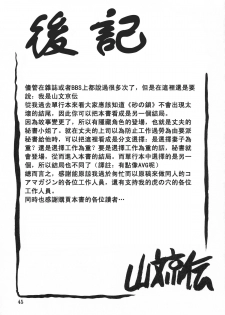 後記
儘管在雜誌或者BBS上都說過很多次了，但是在這裡還是要
說：我是山文京伝
從我過去單行本來看大家應該知道《砂の鎖》不會出現太
壞的結尾，因此你可以把本書看成是另一個結局，
因為故事變更了，所以有隱藏角色的登場，也就是丈夫的
秘書小姐，就在丈夫的上司以為防止工作過勞為由要派
秘書給他的時候，可以把本書看成是分支選擇：是選擇妻子為
重？還是選擇工作為重？要是選擇工作為重的話，秘書就
會登場，從而進入本書的結局，而單行本中選擇的是另一
個，所以結局也不同了（譯註：有點像AVG呢）
總而言之，感謝能原諒我過於匆忙而以原稿來做同人的コ
アマガジン的各位工作人員，還有支持我的虎の穴的各位工
作人員，
同時也感謝購買本書的各位讀者…
山文京伝
45